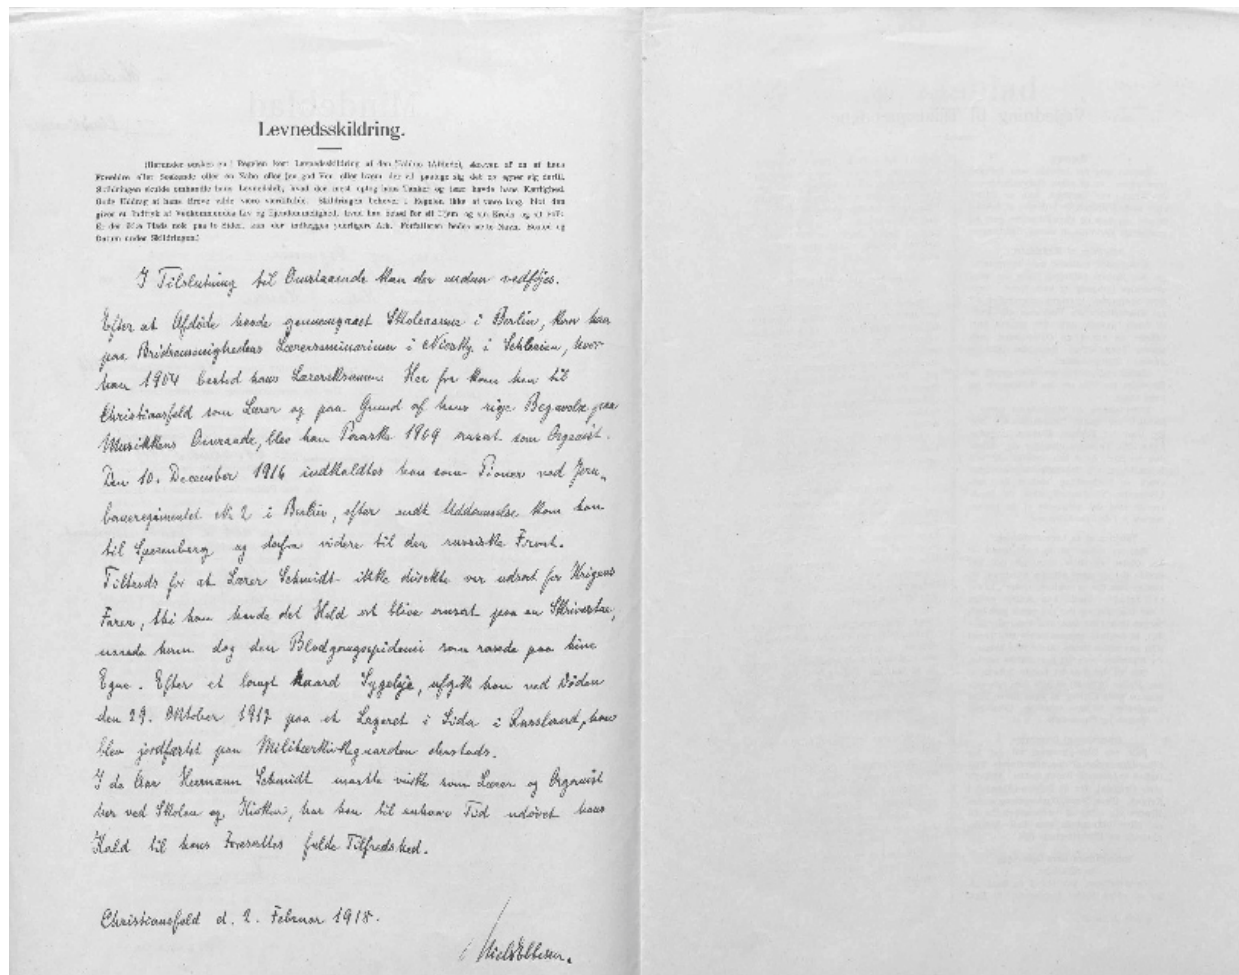 Levnedsskildring.
(Herunder ønskes en i Regelen kort Levnedsskildring af den Faldne (Afdøde), skreven af en af hans
Forældre eller Søskende eller en Nabo eller før god Ven eller hvem der vil paatage sig det og egner sig dertil.
Skildringen skulde omhandle hans Levnedsløb, hvad der mest optog hans Tanker og især havde hans Kærlighed.
Gode Uddrag af hans Breve vilde være værdifulde. Skildringen behøver i Regelen ikke at være lang. Blot den
giver et Indtryk af Vedkommendes Liv og Ejendommelighed, hvad han betød for sit Hjem og sin Kreds og sit Folk.
Er der ikke Plads nok paa to Sider, kan der indlægges yderligere Ark. Forfatteren bedes sætte Navn, Bosted og
Datum under Skildringen.)
I Tilslutning til Ovenstaaende kan der endnu vedføjes.
Efter at Afdøde havde gennemgaaet Skoleaarene i Berlin, kom han
paa Brødremenighedens Lærerseminarium i Niesky i Schlesien, hvor
han 1904 bestod hans Lærereksamen. Her fra kom han til
Christiansfeld som Lærer og paa Grund af hans rige Begavelse paa
Musikkens Omraade, blev han Paaske 1909 ansat som Organist.
Den 10. December 1916 indkaldtes han som Pioner ved Jern-
baneregimentet No 2 i Berlin, efter endt Uddannelse kom han
til Sperenberg og derfra videre til den russiske Front.
Tiltrods for at Lærer Schmidt ikke direkte var udsat for Krigens
Farer, thi han havde det Held at blive ansat paa en Skrivestue,
naaede ham dog den Blodgangsepidemi som rasede paa hine
Egne. Efter et langt haard Sygeleje, afgik han ved Døden
den 29. Oktober 1917 paa et Lazaret i Lida i Russland, han
blev jordfæstet paa Militærkirkegaarden dersteds.
I de Aar Hermann Schmidt maatte virke som Lærer og Organist
her ved Skolen og Kirken, har han til enhver Tid udøvet hans
Kald til hans Foresattes fulde Tilfredshed.
Christiansfeld d. 2. Februar 1918.
Niels Ebbesen.